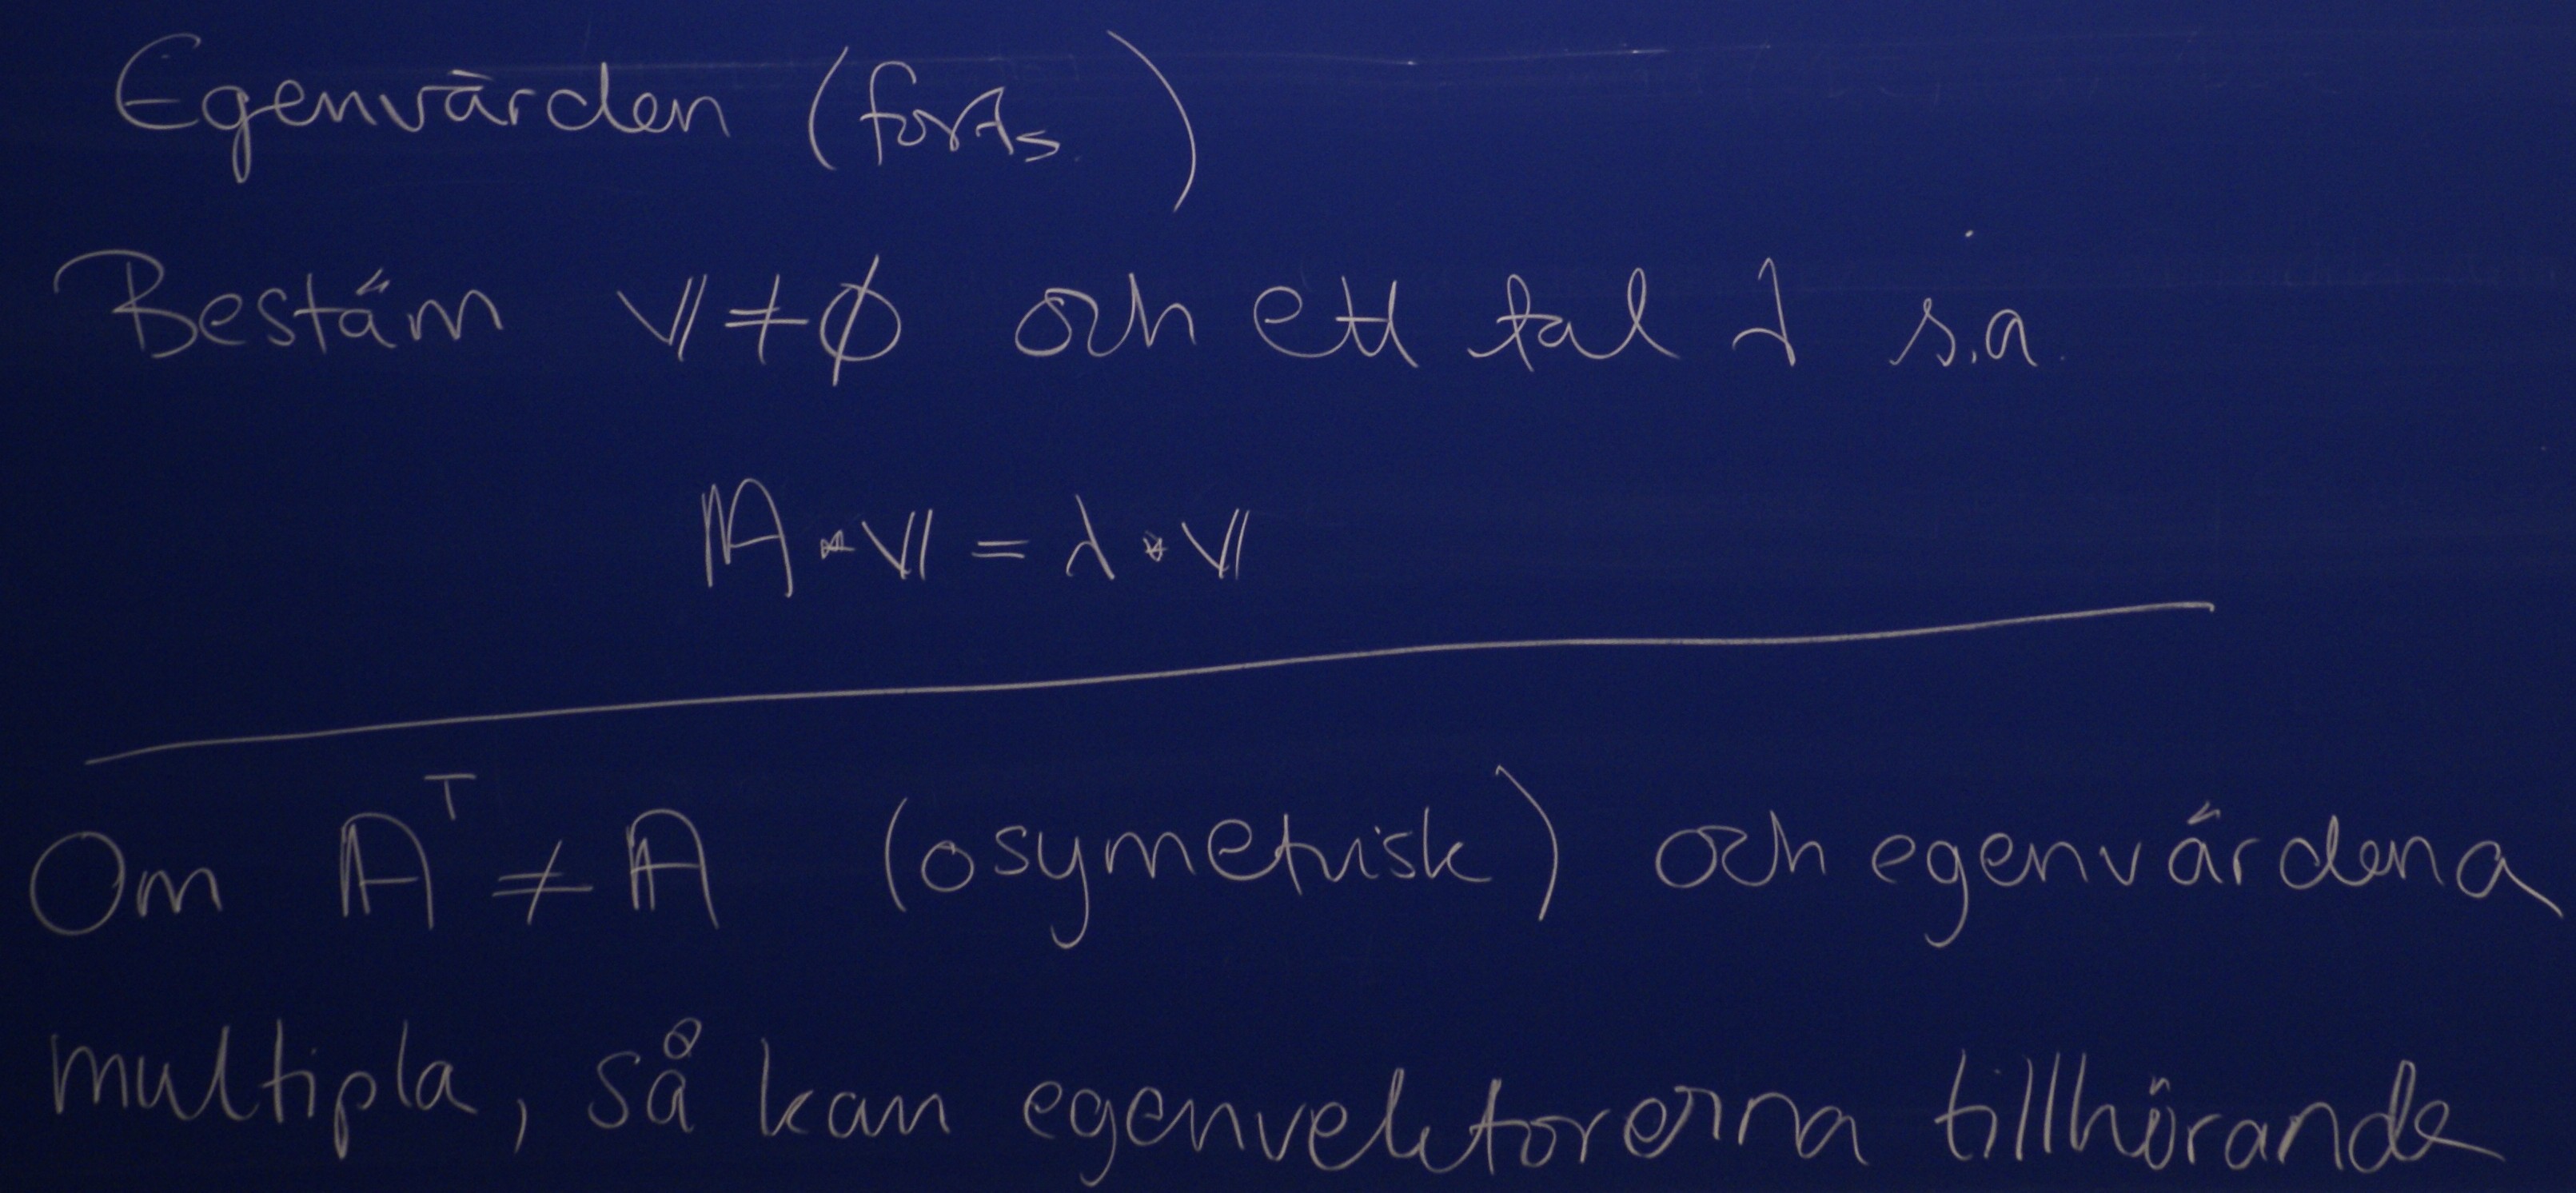 Egenvärden (forts)
Bestäm 𝕍 ≠ ϕ och ett tal λ s.a.
𝔸 · 𝕍 = λ · 𝕍
Om 𝔸ᵀ ≠ 𝔸 (osymetrisk) och egenvärdena
multipla, så kan egenvektorerna tillhörande